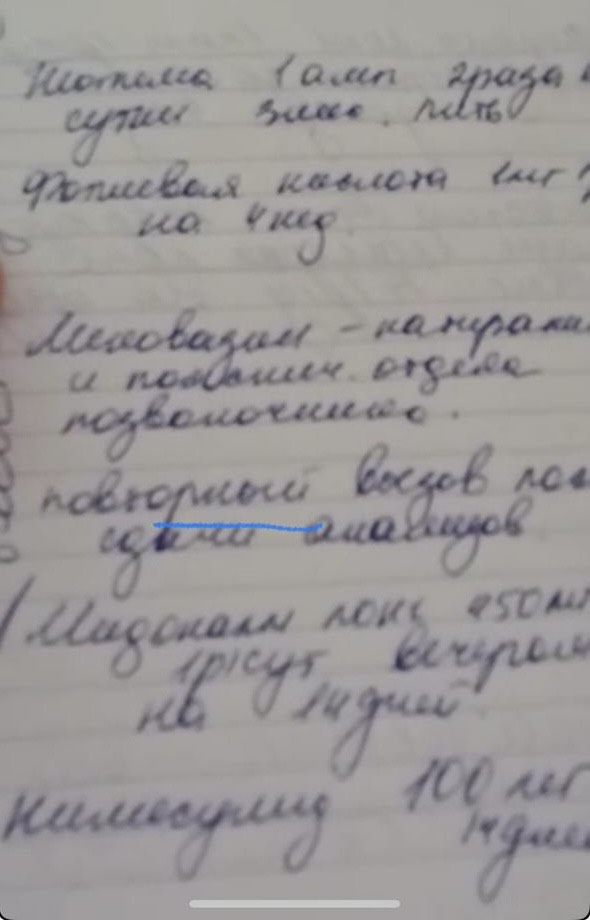 1 амп 2 раза в
сутки пить
Фолиевая кислота 1 мг
на 4 нед.
Меновазин -
и поясничн. отдела
позвоночника.
повторный вызов пос
сдачи анализов
Мидокалм лонг 450 мг
1 р/сут вечером
на 14 дней
Нимесулид 100 мг
14 дне